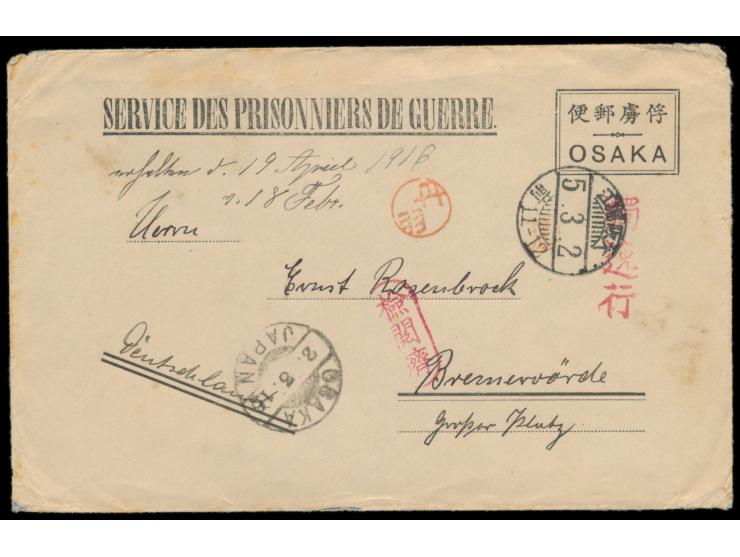 SERVICE DES PRISONNIERS DE GUERRE.
便郵虜俘
OSAKA
erhalten d. 19 April 1916
v. 18 Febr.
Herrn
5.3.2
前11-12
Ernst Rosenbrock
検閲済
Deutschland
OSAKA
2.3.16
JAPAN
Bremervörde
Großer Platz